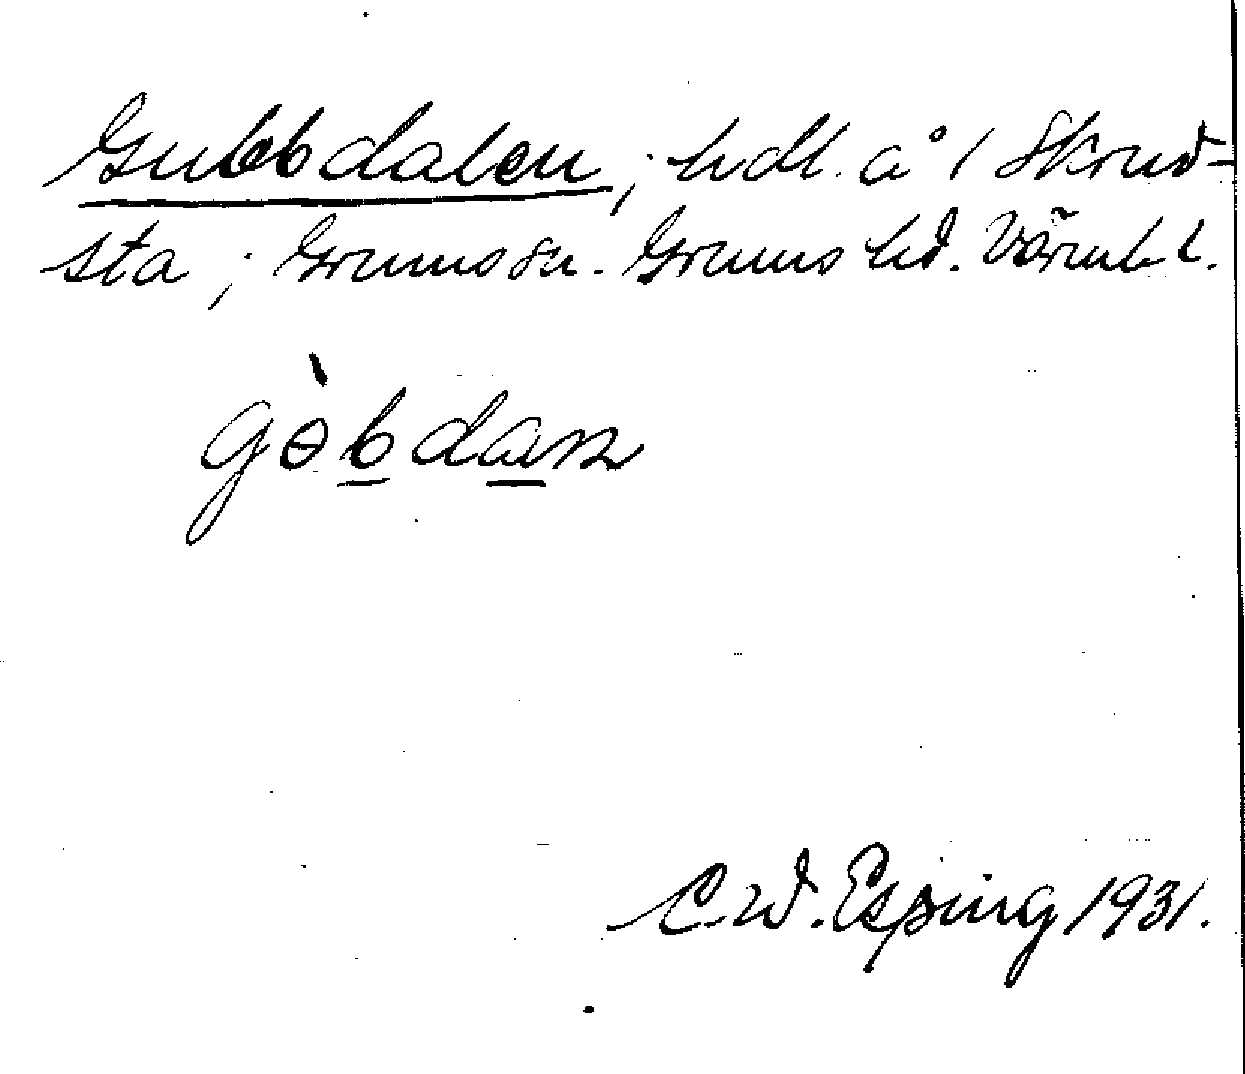 Gubbdalen, hdl. å 1 Skrud-
sta, Grums sn. Grums hd. Värml.
gòbdan
C. W. Esping 1931.